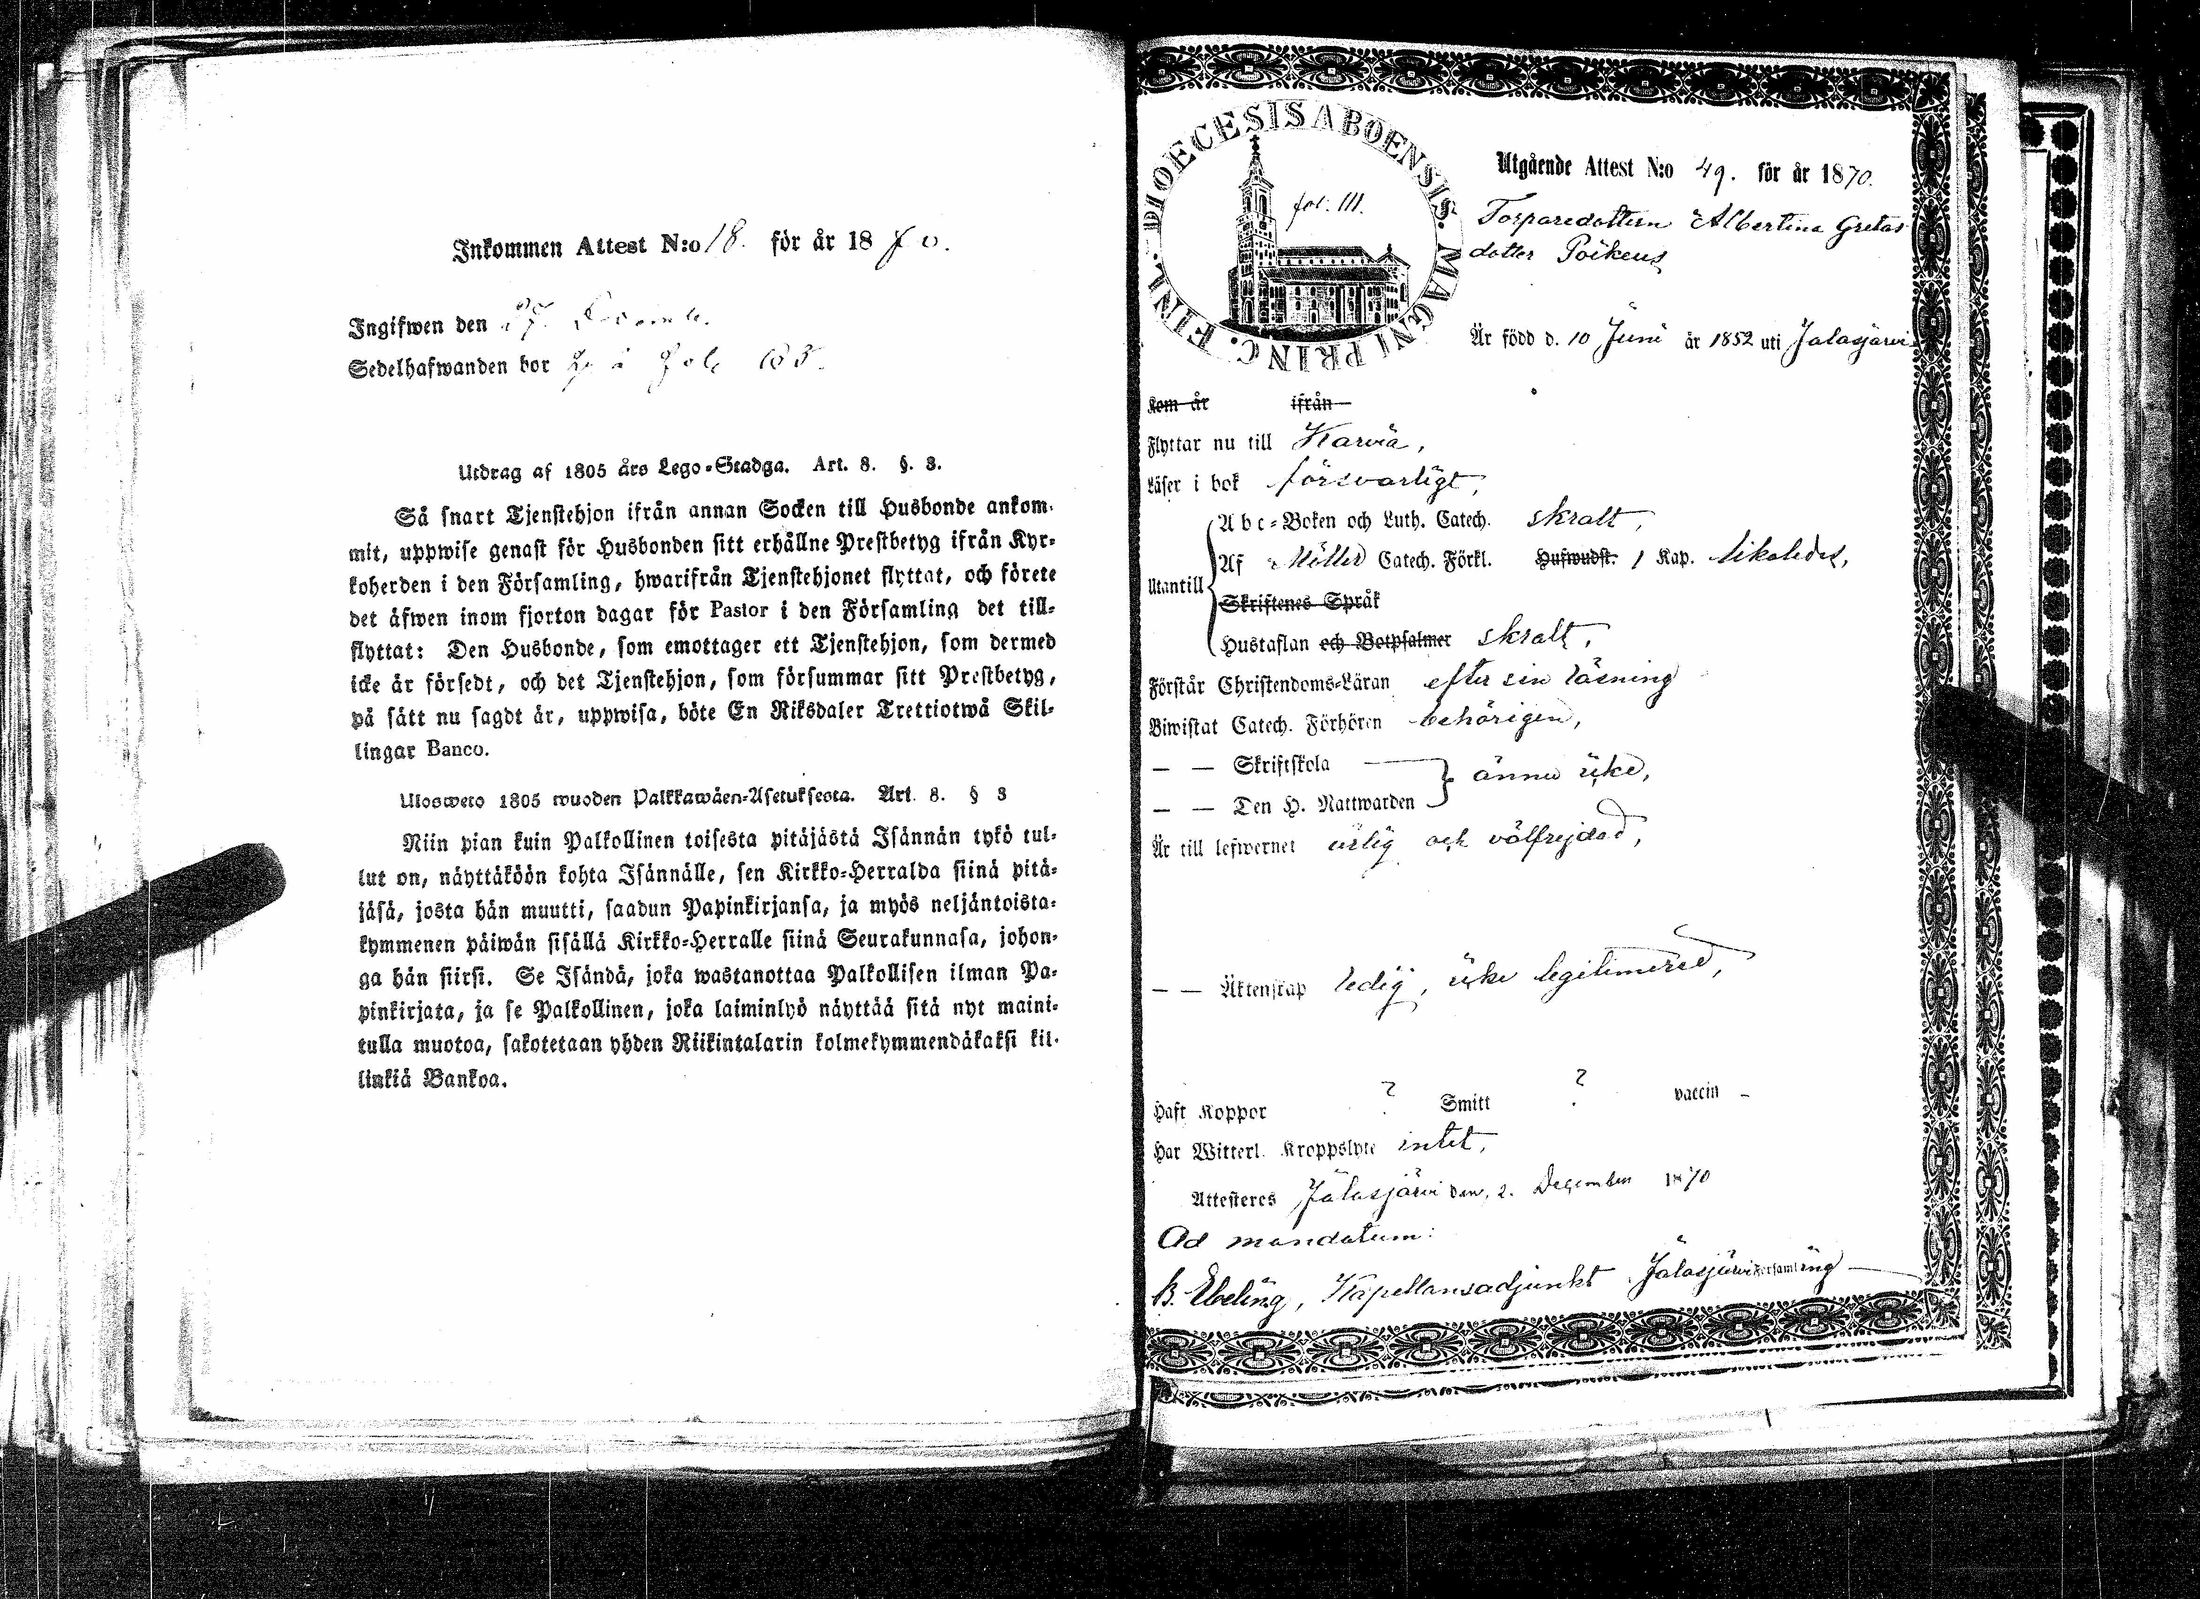 Inkommen Attest N:o 18. för år 1870.
Ingifwen den 27 Decemb.
Sedelhafwanden bor på fol. 103.
Utdrag af 1805 års Lego-Stadga. Art. 8. §. 3.
Så snart Tjenstehjon ifrån annan Socken till Husbonde ankom-
mit, uppwise genast för Husbonden sitt erhållne Prestbetyg ifrån Kyr-
koherden i den Församling, hwarifrån Tjenstehjonet flyttat, och förete
det äfwen inom fjorton dagar för Pastor i den Församling det till-
flyttat: Den Husbonde, som emottager ett Tjenstehjon, som dermed
icke är försedt, och det Tjenstehjon, som försummar sitt Prestbetyg,
på sätt nu sagdt är, uppwisa, böte En Riksdaler Trettiotwå Skil-
lingar Banco.
Ulosweto 1805 wuoden Palkkawäen-Asetuksesta. Art. 8. § 3
Niin pian kuin Palkollinen toisesta pitäjästä Isännän tykö tul-
lut on, näyttäköön kohta Isännälle, sen Kirkko-Herralda siinä pitä-
jäsä, josta hän muutti, saadun Papinkirjansa, ja myös neljäntoista-
kymmenen päiwän sisällä Kirkko-Herralle siinä Seurakunnasa, johon-
ga hän siirsi. Se Isändä, joka wastanottaa Palkollisen ilman Pa-
pinkirjata, ja se Palkollinen, joka laiminlyö näyttää sitä nyt maini-
tulla muotoa, sakotetaan yhden Riikintalarin kolmekymmendäkaksi kil-
linkiä Bankoa.
DIOECESIS ABOENSIS. MAGNI PRINC. FINL.
fol. 111.
Utgående Attest N:o 49. för år 1870.
Torparedottern Albertina Gretas
dotter Poikeus
Är född d. 10 Juni år 1852 uti Jalasjärvi
Kom år ifrån
Flyttar nu till Karvia,
Läser i bok försvarligt,
Abc-Boken och Luth. Catech. skralt,
Utantill
Af Möller Catech. Förkl. Hufwudst. 1 Kap. likaledes,
Skriftenes Språk
Hustaflan och Botpsalmer skralt,
Förstår Christendoms-Läran efter sin läsning
Biwistat Catech. Förhören behörigen,
— — Skriftskola
ännu icke,
— — Den H. Nattwarden
Är till lefwernet ärlig och välfrejdad,
— — Äktenskap ledig, icke legitimerad,
Haft Koppor ? Smitt ? vaccin -
Har Witterl. Kroppslyte intet,
Attesteres Jalasjärvi den 2. December 1870
Ad mandatum:
B. Ebeling, Kapellansadjunkt Jalasjärvi Församling